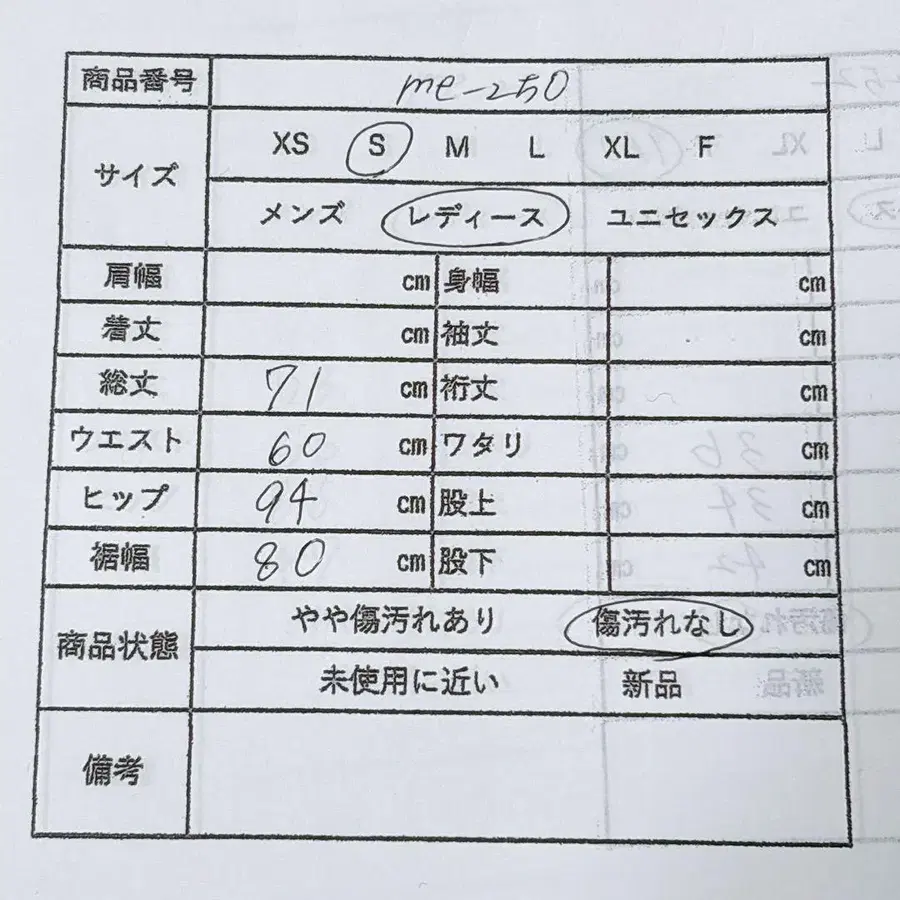 商品番号 me-250
サイズ XS S M L XL F
メンズ レディース ユニセックス
肩幅 cm 身幅 cm
着丈 cm 袖丈 cm
総丈 71 cm 裄丈 cm
ウエスト 60 cm ワタリ cm
ヒップ 94 cm 股上 cm
裾幅 80 cm 股下 cm
商品状態 やや傷汚れあり 傷汚れなし
未使用に近い 新品
備考